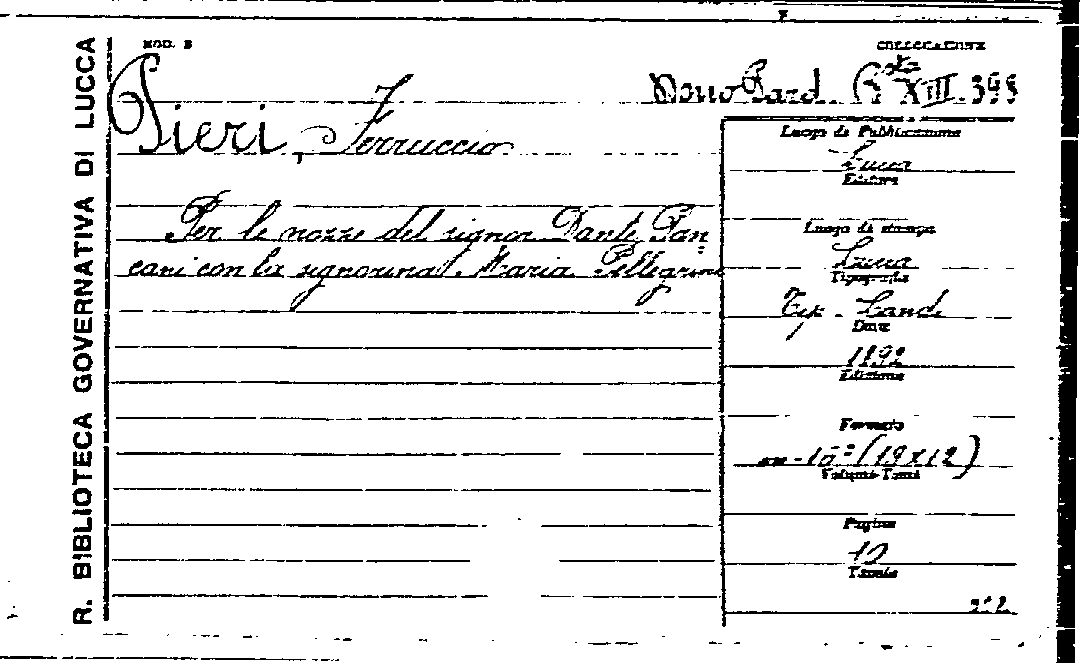 R. BIBLIOTECA GOVERNATIVA DI LUCCA
MOD. B
COLLOCAZIONE
XIII. 395
Pieri, Ferruccio
Per le nozze del signor Dante Pan=
cani con la signorina Maria Pellegrini
Luogo di Pubblicazione
Lucca
Editore
Luogo di stampa
Lucca
Tipografia
Tip. Landi
Data
1892
Edizione
Formato
(19x12)
Volumi-Tomi
Pagine
10
Tavole